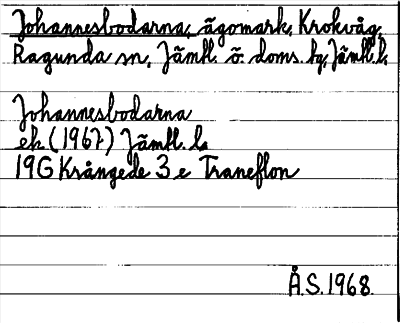 Johannesbodarna, ägomark, Krokvåg,
Ragunda sn, Jämtl. ö. doms. bg, Jämtl. l.
Johannesbodarna
ek (1967) Jämtl. l.
19G Krångede 3 e Traneflon
Å.S. 1968.